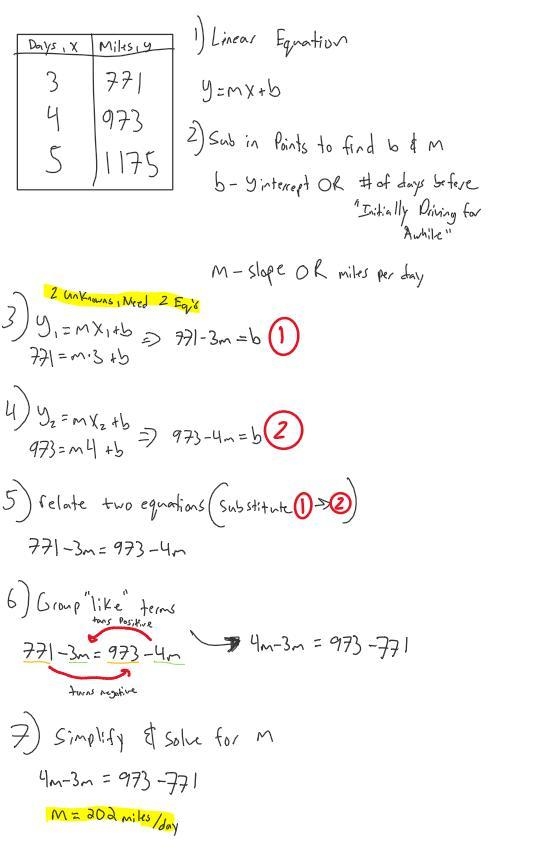 Days, x Miles, y
3 771
4 973
5 1175
1) Linear Equation
y=mx+b
2) Sub in Points to find b & m
b - y intercept OR # of days before
"Initially Driving for
Awhile"
m - slope OR miles per day
2 unknowns, Need 2 Eq's
3) y₁=mx₁+b => 771-3m=b ①
771=m·3+b
4) y₂=mx₂+b => 973-4m=b ②
973=m4+b
5) relate two equations (substitute ①->②)
771-3m=973-4m
6) Group "like" terms
turns Positive
771-3m=973-4m -> 4m-3m=973-771
turns negative
7) Simplify & solve for m
4m-3m=973-771
m=202 miles/day